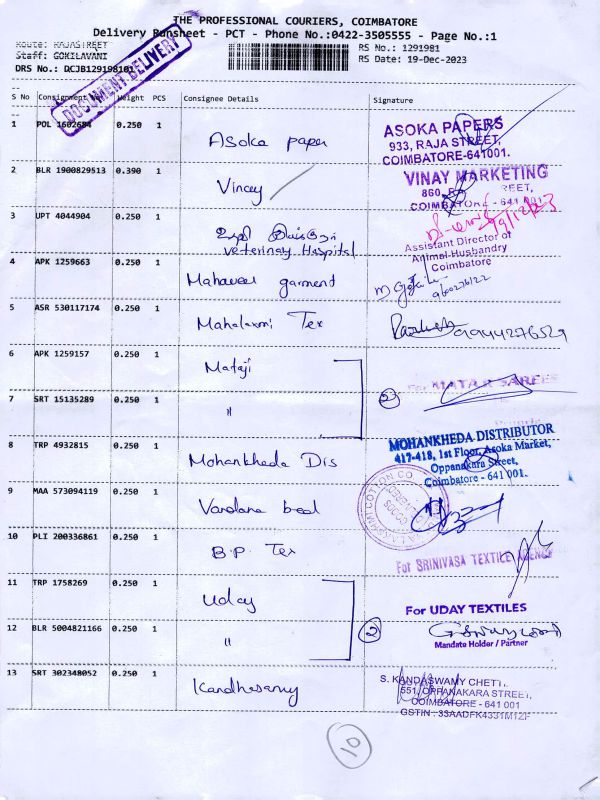 THE PROFESSIONAL COURIERS, COIMBATORE
Delivery Runsheet - PCT - Phone No.:0422-3505555 - Page No.:1
Route: RAJASTREET
RS No.: 1291981
Staff: GOKILAVANI
RS Date: 19-Dec-2023
DRS No.: DCJB129198101
DOCUMENT DELIVERY
S No Consignment No Weight PCS Consignee Details Signature
1 POL 1602684 0.250 1 Asoka paper
ASOKA PAPERS
933, RAJA STREET,
COIMBATORE-641001.
2 BLR 1900829513 0.390 1 Vinay
VINAY MARKETING
860, STREET,
COIMBATORE - 641 001
3 UPT 4044904 0.250 1
veterinary Hospital
19/12/23
Assistant Director of
Animal Husbandry
Coimbatore
4 APK 1259663 0.250 1 Mahaveer garment
5 ASR 530117174 0.250 1 Mahalaxmi Tex
9944276529
6 APK 1259157 0.250 1 Mataji
For MATAJI SAREES
7 SRT 15135289 0.250 1 "
2
8 TRP 4932815 0.250 1 Mohankheda Dis
MOHANKHEDA DISTRIBUTOR
417-418, 1st Floor, Asoka Market,
Oppanakara Street,
Coimbatore - 641 001.
9 MAA 573094119 0.250 1 Vardana bead
10 PLI 200336861 0.250 1 B.P. Tex
For SRINIVASA TEXTILE AGENCY
11 TRP 1758269 0.250 1 Uday
For UDAY TEXTILES
12 BLR 5004821166 0.250 1 "
2
Mandate Holder / Partner
13 SRT 302348052 0.250 1 Kandhasamy
S. KANDASWAMY CHETTI,
551, OPPANAKARA STREET,
COIMBATORE - 641 001
GSTIN : 33AADFK4331M1ZF
10